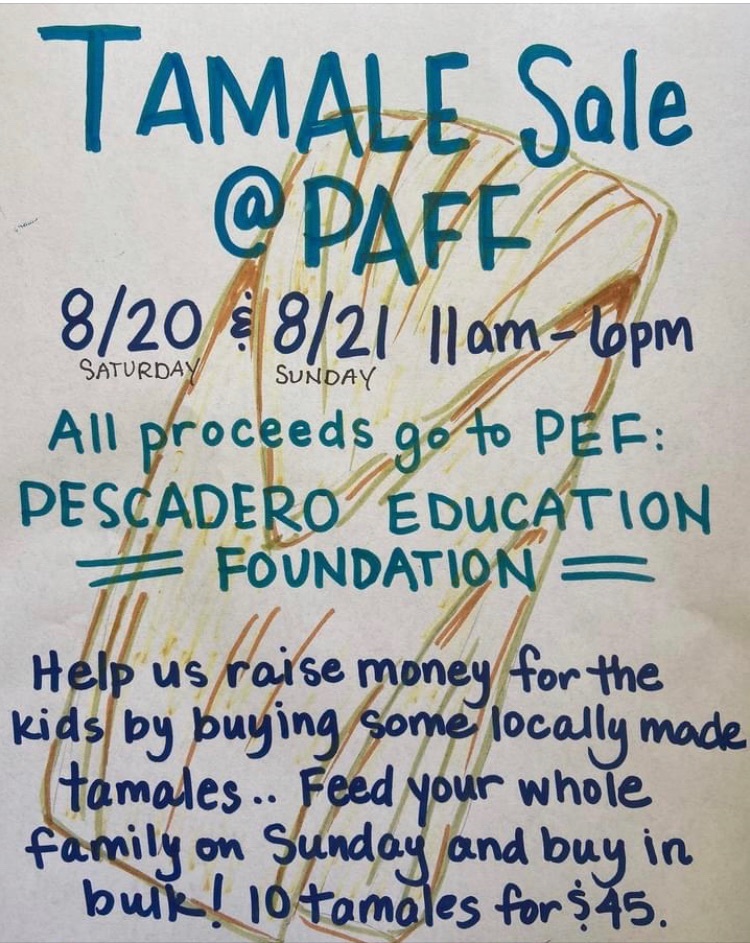 TAMALE Sale
@ PAFF
8/20 & 8/21 11am-6pm
SATURDAY SUNDAY
All proceeds go to PEF:
PESCADERO EDUCATION
FOUNDATION
Help us raise money for the
kids by buying some locally made
tamales.. Feed your whole
family on Sunday and buy in
bulk! 10 tamales for $45.